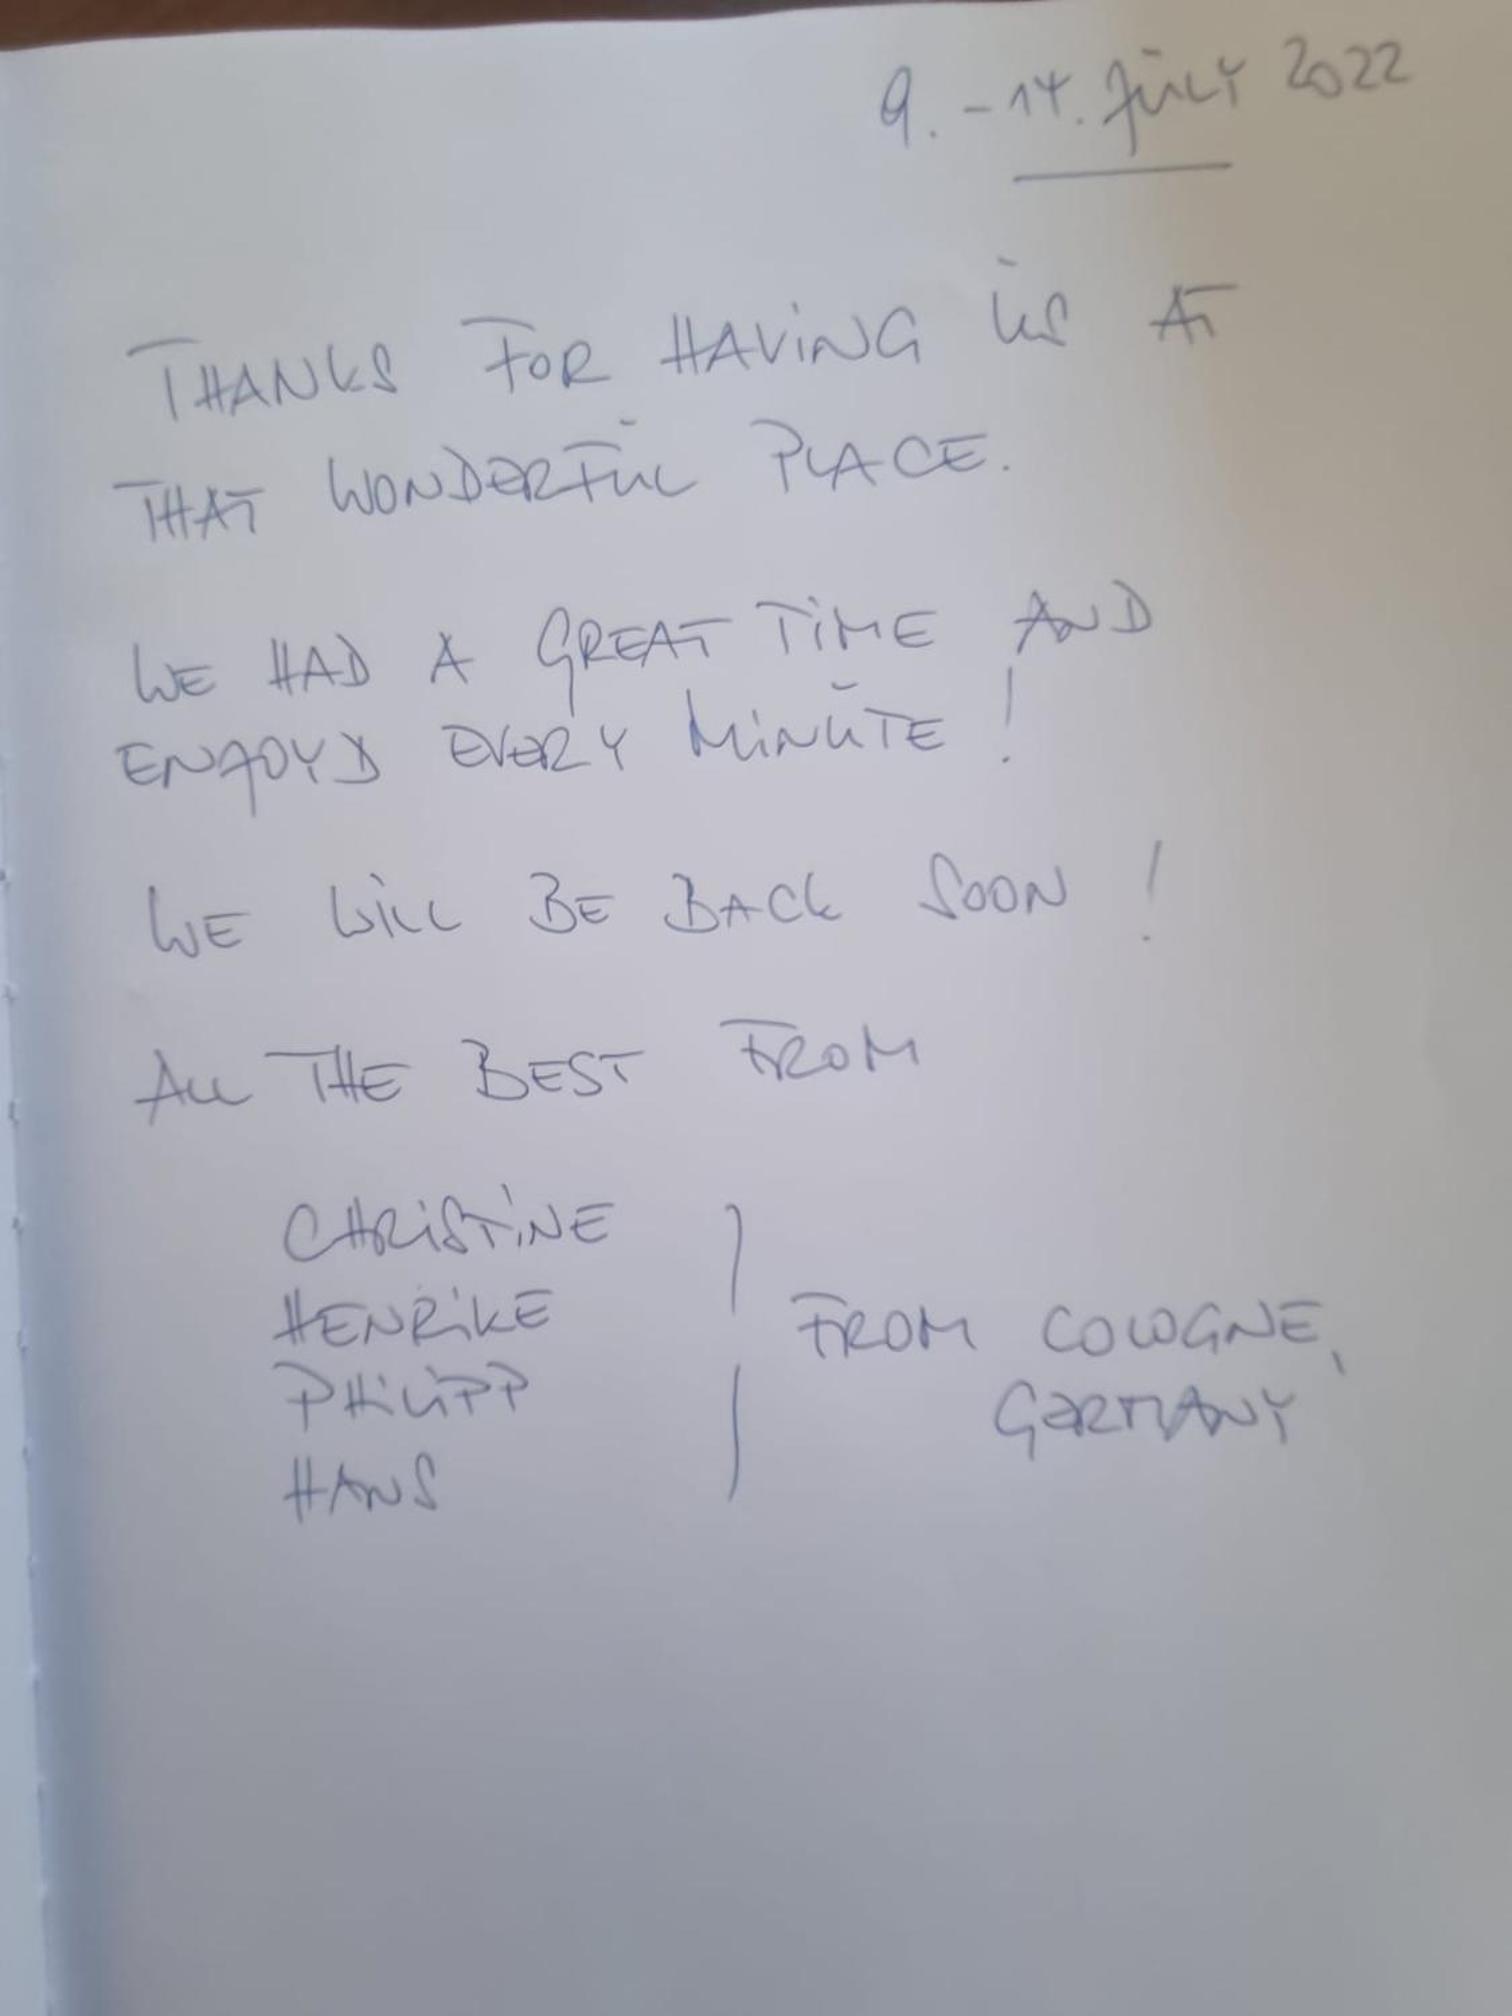 9. - 14. JULY 2022
THANKS FOR HAVING US AT
THAT WONDERFUL PLACE.
WE HAD A GREAT TIME AND
ENJOYD EVERY MINUTE!
WE WILL BE BACK SOON!
ALL THE BEST FROM
CHRISTINE
HENRIKE
PHILIPP
HANS
FROM COLOGNE,
GERMANY